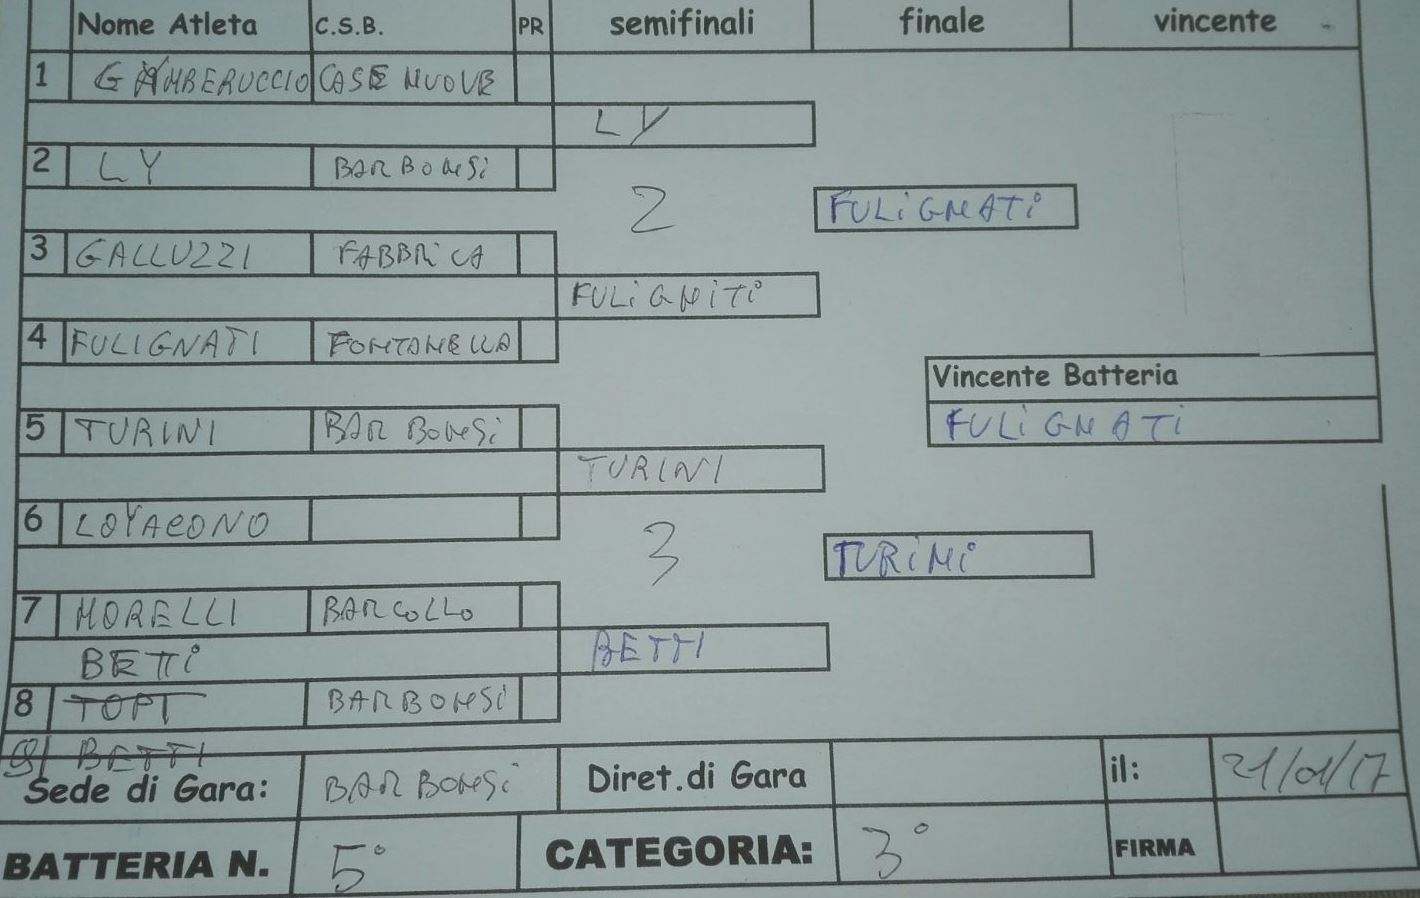 Nome Atleta C.S.B. PR semifinali finale vincente
1 GAMBERUCCIO CASE NUOVE
LY
2 LY BARBONSi
2 FULiGNATi
3 GALLUZZI FABBRiCA
FULiGNiTi
4 FULIGNATI FONTANELLA
Vincente Batteria
5 TURINI BARBONSi FULiGNATi
TURINI
6 LOYACONO
3 TURiNi
7 MORELLI BARCOLLO
BETTi BETTI
8 TOPT BARBONSi
9) BETTI
Sede di Gara: BARBONSi Diret.di Gara il: 21/01/17
BATTERIA N. 5° CATEGORIA: 3° FIRMA